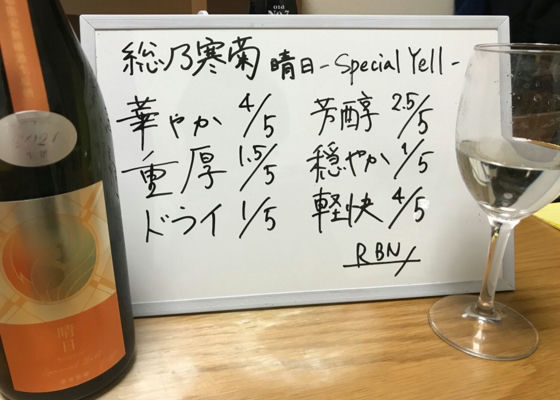 総乃寒菊 晴日 -Special Yell-
華やか 4/5 芳醇 2.5/5
重厚 1.5/5 穏やか 1/5
ドライ 1/5 軽快 4/5
RBN
Old
No.7
2021
晴日